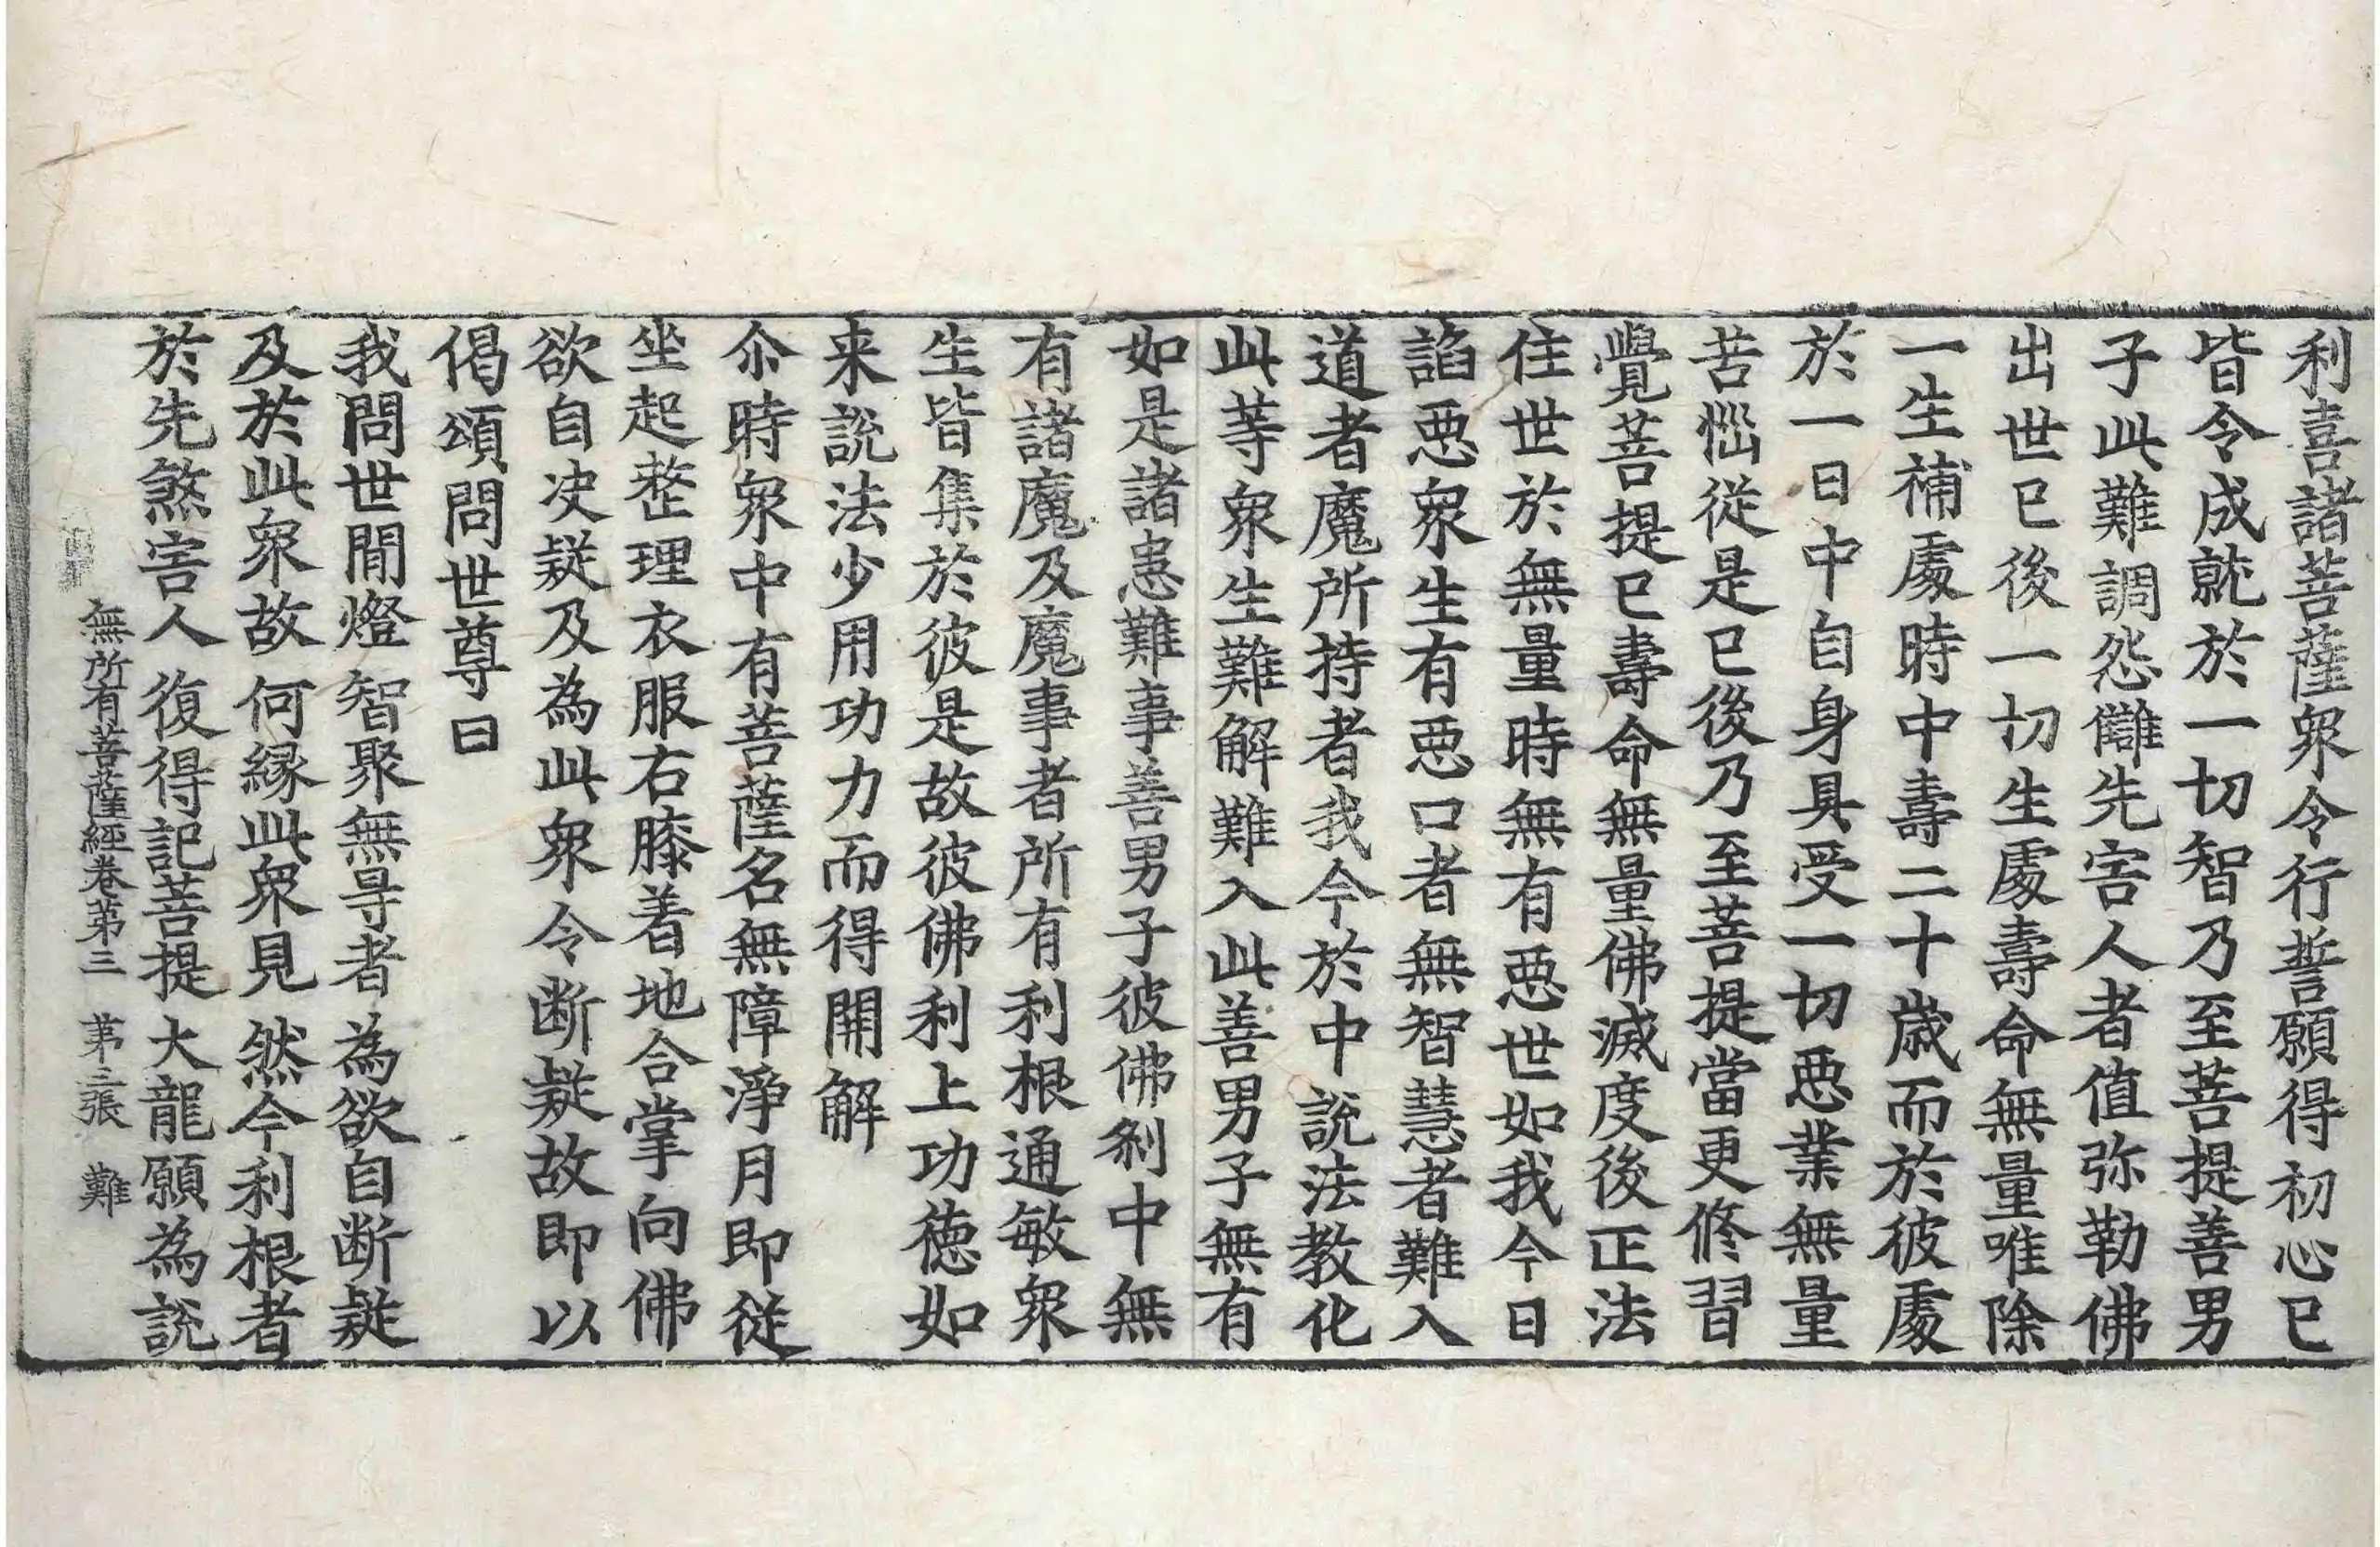 利喜諸菩薩衆令行誓願得初心已
皆令成就於一切智乃至菩提善男
子此難調怨讎先害人者值弥勒佛
出世已後一切生處壽命無量唯除
一生補處時中壽二十歲而於彼處
於一日中自身具受一切惡業無量
苦惱從是已後乃至菩提當更修習
覺菩提已壽命無量佛滅度後正法
住世於無量時無有惡世如我今日
諂惡衆生有惡口者無智慧者難入
道者魔所持者我今於中說法教化
此等衆生難解難入此善男子無有
如是諸恚難事善男子彼佛剎中無
有諸魔及魔事者所有利根通敏衆
生皆集於彼是故彼佛利上功德如
来說法少用功力而得開解
尒時衆中有菩薩名無障淨月即從
坐起整理衣服右膝着地合掌向佛
欲自决疑及為此衆令断疑故即以
偈頌問世尊曰
我問世間燈 智聚無㝵者 為欲自断疑
及於此衆故 何緣此衆見 然今利根者
於先煞害人 復得記菩提 大龍願為說
無所有菩薩經卷第三 第三張 難